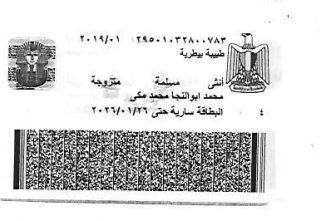 ٢٠١٩/٠١ ٢٩٥٠١٠٣٢٨٠٠٧٨٣
طبيبة بيطرية
أنثى مسلمة متزوجة
محمد ابوالنجا محمد مكى
البطاقة سارية حتى ٢٠٢٦/٠١/٢٦
٤